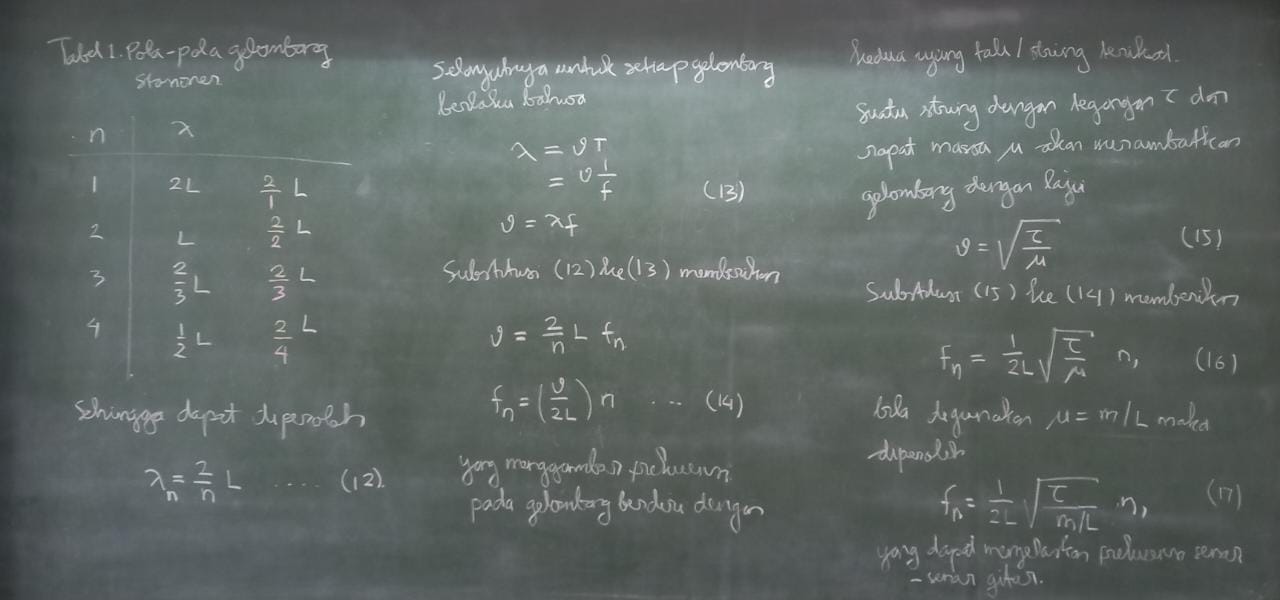 Tabel 1. Pola-pola gelombang
stasioner
n λ
1 2L 2/1 L
2 L 2/2 L
3 2/3 L 2/3 L
4 1/2 L 2/4 L
Sehingga dapat diperoleh
λₙ = 2/n L .... (12)
Selanjutnya untuk setiap gelombang
berlaku bahwa
λ = vT
= v 1/f (13)
v = λf
Substitusi (12) ke (13) memberikan
v = 2/n L fₙ
fₙ = (v/2L) n ... (14)
yang menggambar frekuensi
pada gelombang berdiri dengan
kedua ujung tali / string terikat.
Suatu string dengan tegangan τ dan
rapat massa μ akan merambatkan
gelombang dengan laju
v = √(τ/μ) (15)
Substitusi (15) ke (14) memberikan
fₙ = 1/2L √(τ/μ) n, (16)
bila digunakan μ = m/L maka
diperoleh
fₙ = 1/2L √(τ/(m/L)) n, (17)
yang dapat menjelaskan frekuensi senar
- senar gitar.